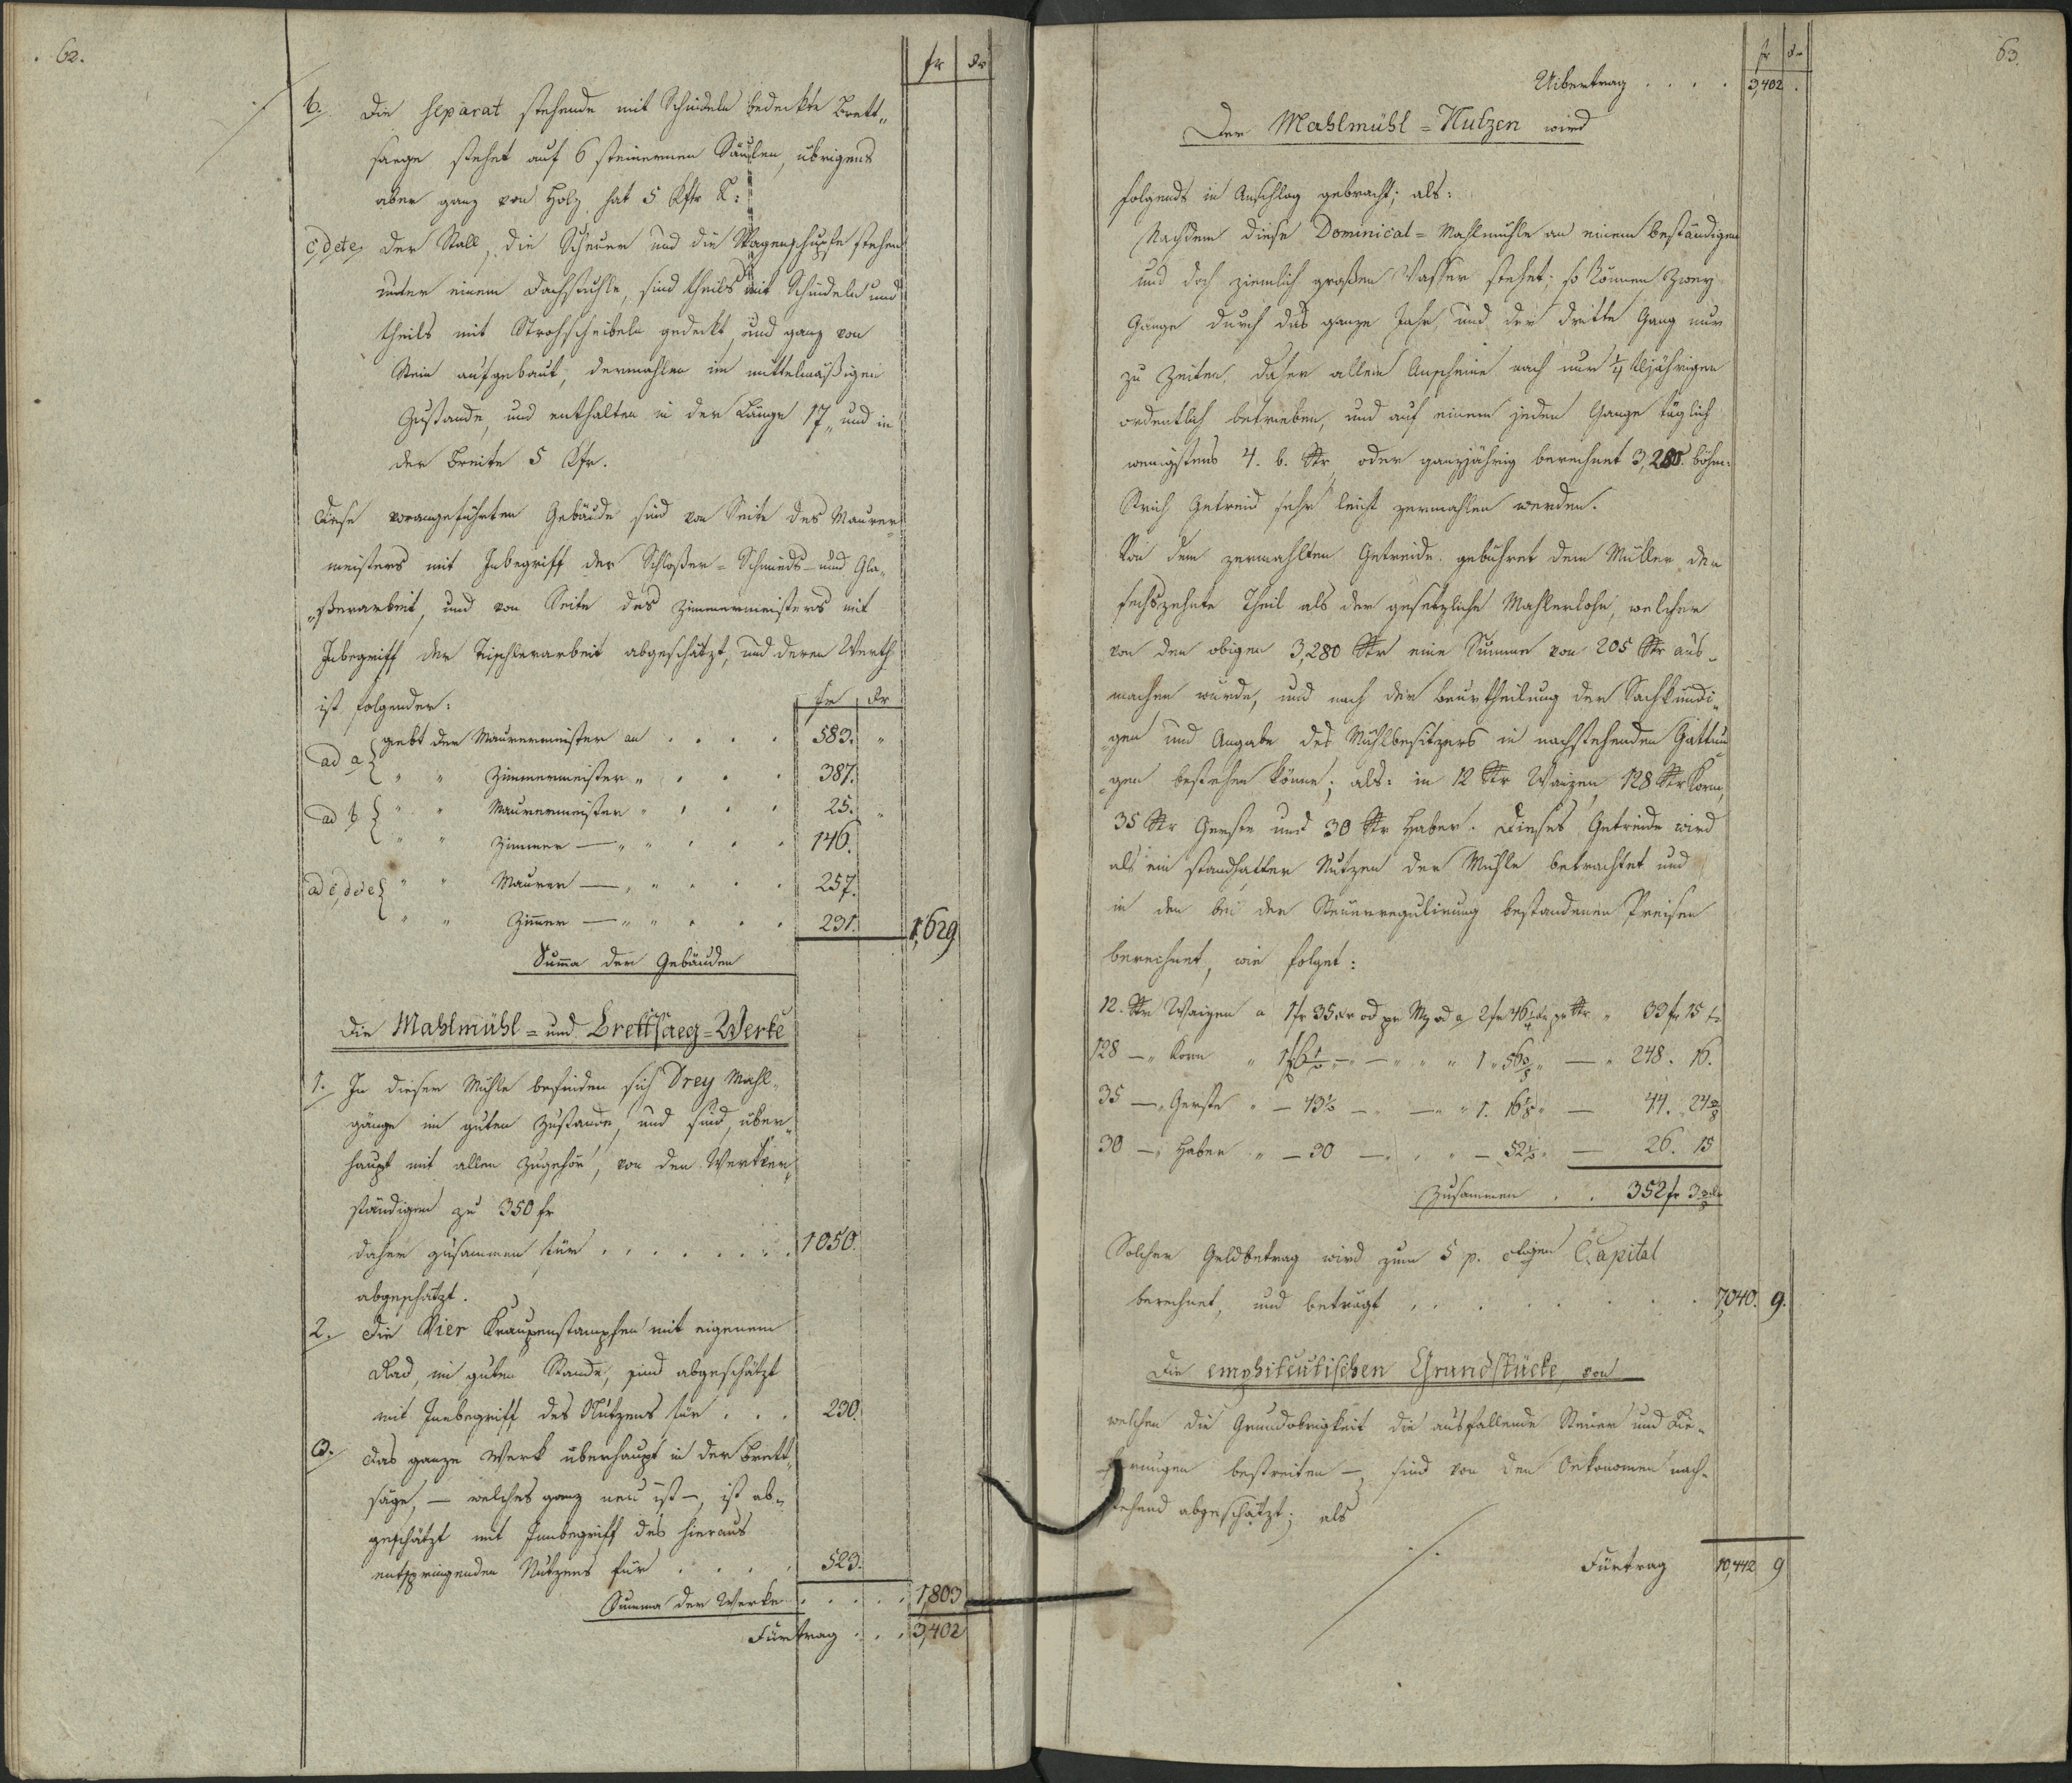 62.
fr xr
b. Die separat stehende mit Schindeln bedeckte Brett„
saege stehet auf 6 steinernen Säulen, übrigens
aber ganz von Holz hat 5 Kftr
c, d et e, Der Stall, die Scheuer und die Wagenschupfe stehen
unter einem Dachstuhle, sind theils mit Schindeln und
theils mit Strohscheibeln gedeckt, und ganz von
Stein aufgebaut, dermahlen im mittelmäßigen
Zustande, und enthalten in der Länge 17„ und in
der Breite 5 Kftr.
Diese vorangeführten Gebäude sind von Seite des Maurer„
meisters mit Inbegriff der Schlosser- Schmieds- und Gla„
„sserarbeit, und von Seite des Zimmermeisters mit
Inbegriff der Tischlerarbeit abgeschätzt, und deren Werth
ist folgender: fr xr
ad a { gebt der Maurermeister an . . . . 583. „
„ „ Zimmermeister „ . . . 387.
ad b { „ „ Maurermeister „ . . . 25. „
„ „ Zimmer — „ „ . . . 146.
ad c, d et e { „ „ Maurer — „ „ . . . 257.
„ „ Zimmer — „ „ . . . 231. 1,629
Summa der Gebäuden
Die Mahlmühl = und Brettsaeg = Werke
1. In dieser Mühle befinden sich Drey Mahl„
gänge im guten Zustande, und sind, über„
haupt mit allen Zugehör, von den Werkver„
ständigen zu 350 fr
daher zusammen für . . . . . . . 1050.
abgeschätzt.
2. Die Vier Graupenstampfen mit eigenem
Rad, im guten Stande, sind abgeschätzt
mit Innbegriff des Nutzens für . . . 230.
3. Das ganze Werk überhaupt in der Brett„
säge, — welches ganz neu ist —, ist ab„
geschätzt mit Innbegriff des hieraus
entspringenden Nutzens für . . . . 523.
Summa der Werke . . . . . 1,803
Fürtrag . . . 3,402
63.
fr xr
Uibertrag . . . . 3,402 .
Der Mahlmühl = Nutzen wird
folgends in Anschlag gebracht; als:
Nachdem diese Dominical = Mahlmühle an einem beständigen
und doch ziemlich großen Wasser stehet; so können Zwey
Gänge durch das ganze Jahr, und der dritte Gang nur
zu Zeiten, daher allem Anscheine nach nur 1/4
ordentlich betrieben, und auf einem jeden Gange täglich
wenigstens 4. b. Str oder ganzjährig berechnet 3,280. böhm:
Strich Getreid sehr leicht zermahlen werden.
Von dem zermahlten Getreide gebühret dem Müller der
sechszehnte Theil als der gesetzliche Mahlerlohn, welcher
von den obigen 3,280 Str eine Summe von 205 Str aus„
machen würde, und nach der Beurtheilung der Sachkundi„
„gen und Angabe des Mühlbesitzers in nachstehenden Gattun
„gen bestehen könne; als: in 12 Str Waizen, 128 Str Korn,
35 Str Gerste und 30 Str Haber. Dieses Getreide wird
als ein standhafter Nutzen der Mühle betrachtet und
in den bei der Steuerregulirung bestandenen Preisen
berechnet, wie folget:
12. Str Waizen a 1 fr 35 xr od pr Mz od a 2 fr 46 1/4 xr pr Str „ 33 fr 15 xr
128 — „ Korn „ „ „ 1 „ 56 3/8 „ — „ 248. 16.
35 — „ Gerste „ — 43 1/2 — „ — „ „ 1. 16 1/8 „ — 44. 24 3/8
30 — „ Haber „ — 30 — „ „ „ — 52 1/2 „ — 26. 15
Zusammen . . 352 fr 3 xr
Solcher Geldbetrag wird zum 5 p. Ctigen Capital
berechnet, und beträgt . . . . . . . 7,040. 9.
Die emphiteutischen Grundstücke, von
welchen die Grundobrigkeit die ausfallende Steuer und Lie„
ferungen bestreiten —, sind von den Oekonomen nach„
stehend abgeschätzt; als
Fürtrag 10,442 9